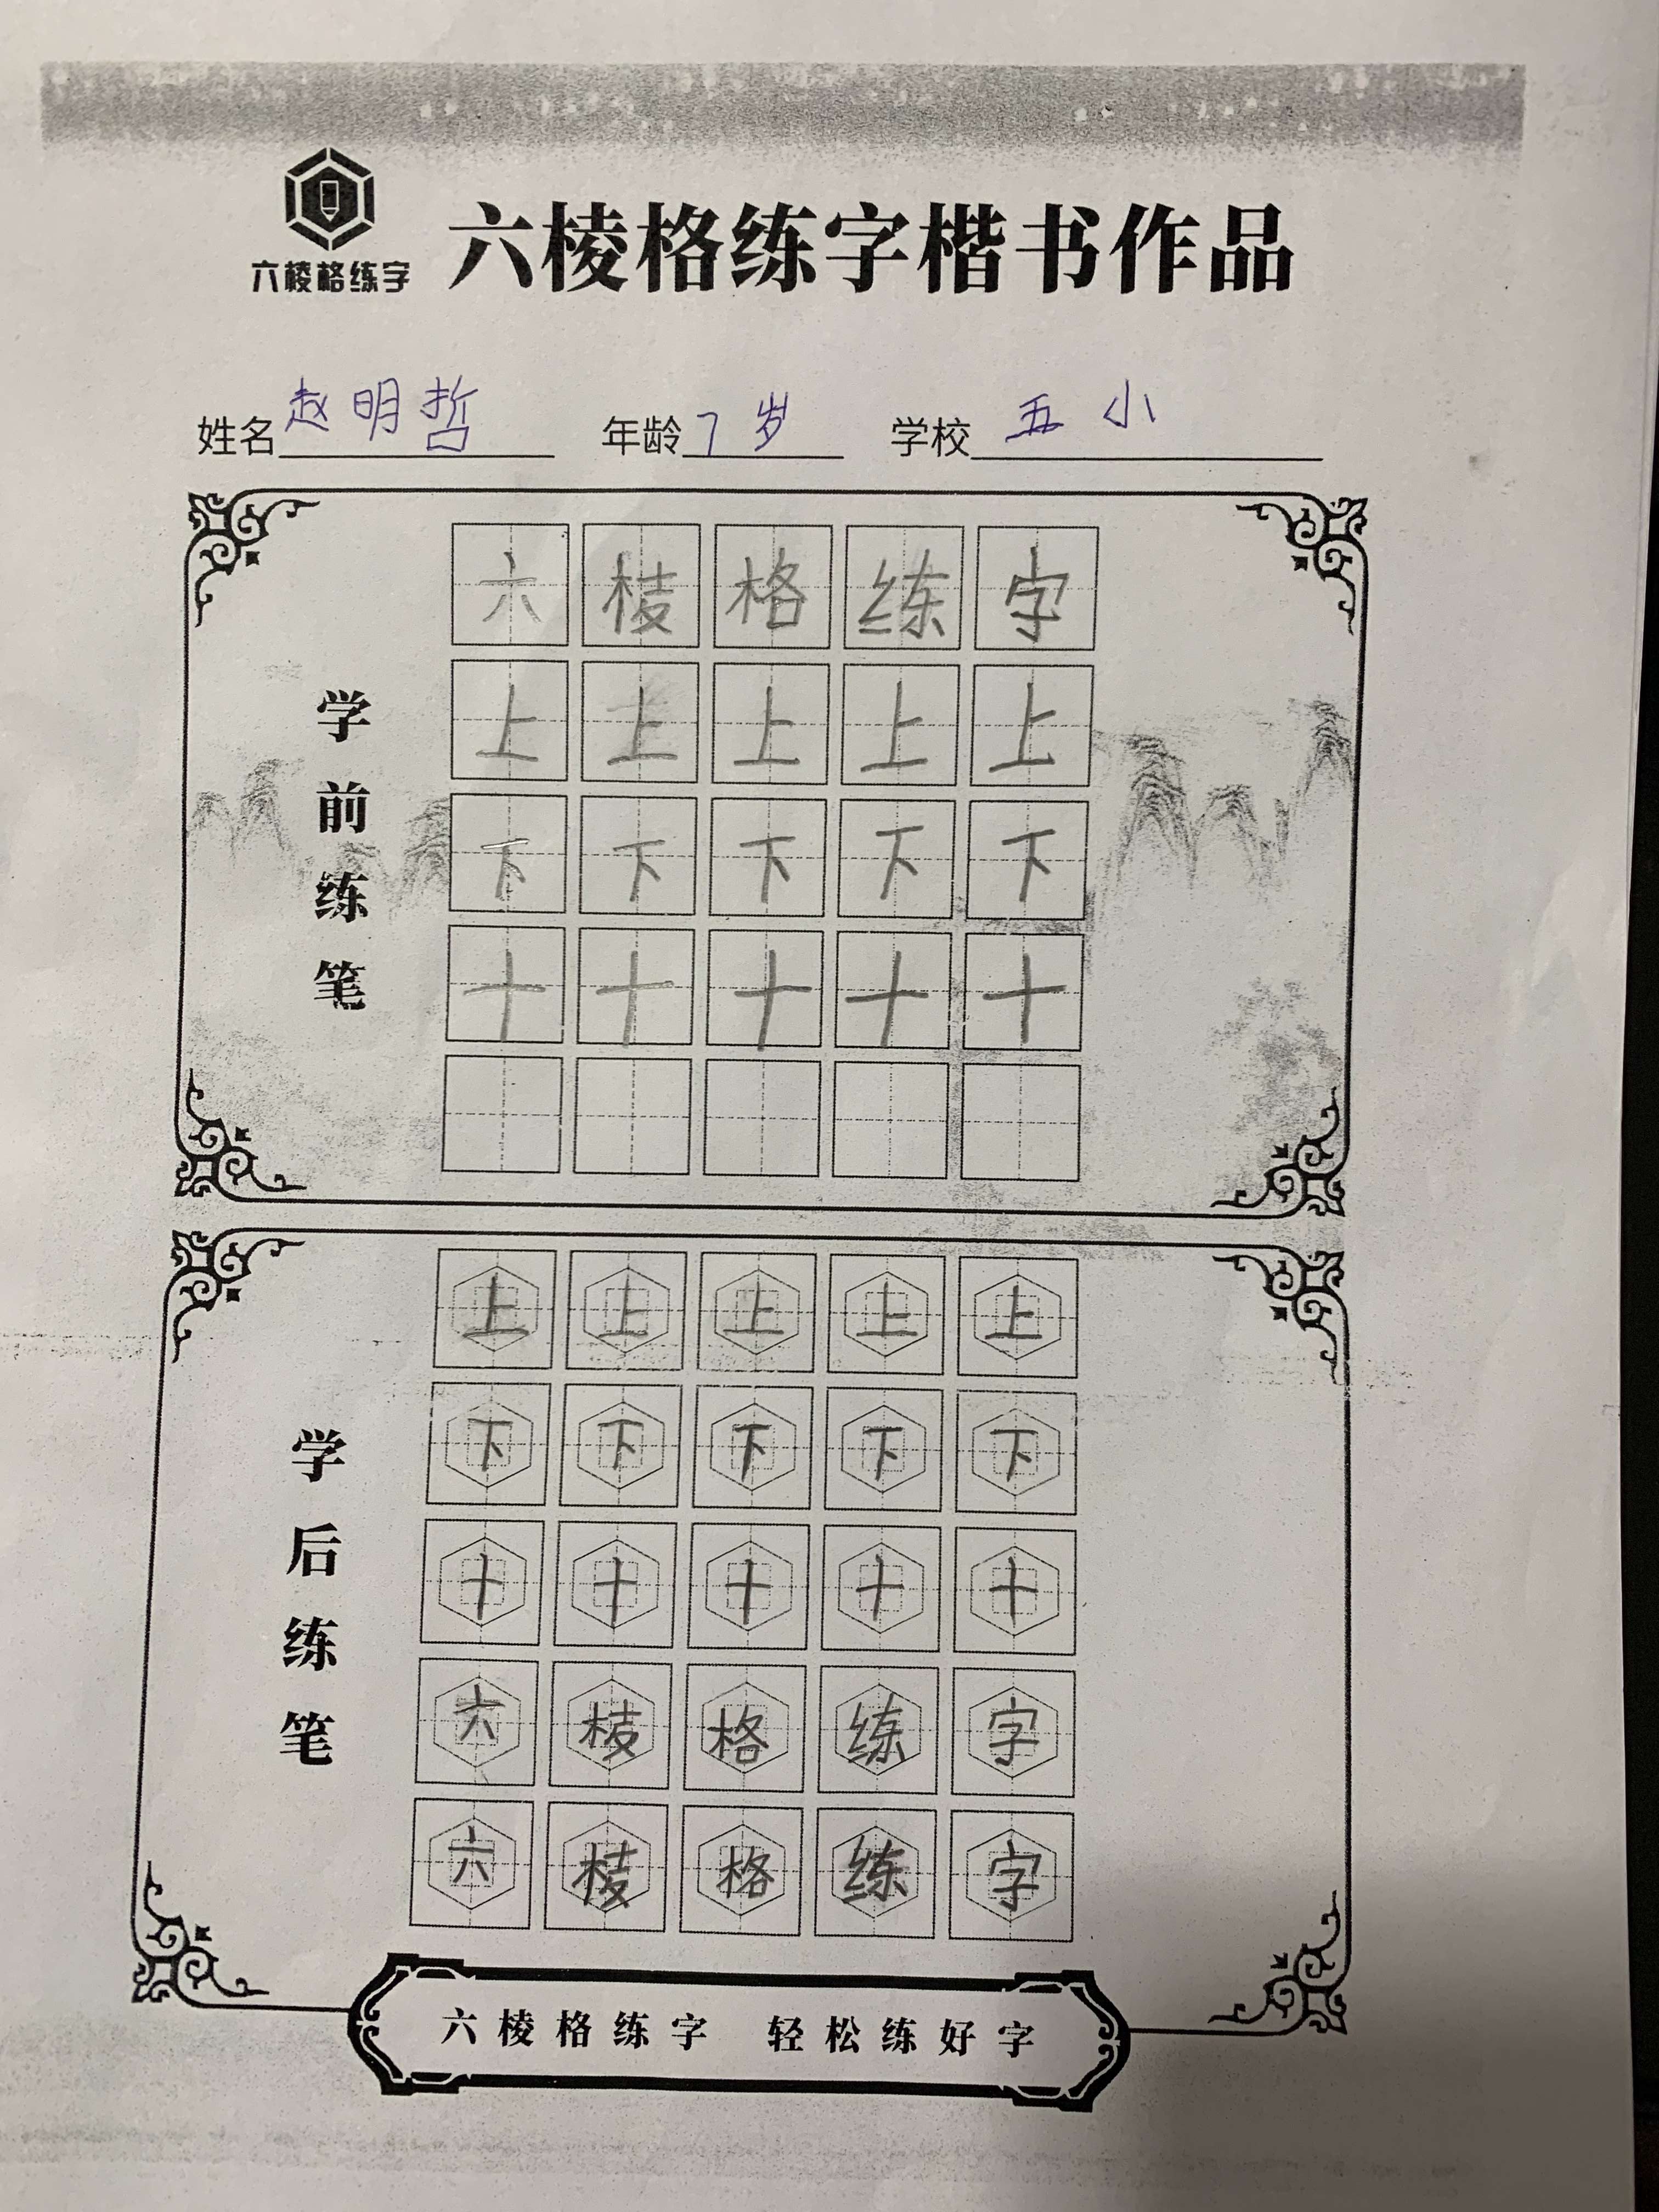 六棱格练字
六棱格练字楷书作品
姓名 赵明哲 年龄 7岁 学校 五小
学前练笔
六棱格练字
上上上上上
下下下下下
十十十十十
学后练笔
上上上上上
下下下下下
十十十十十
六棱格练字
六棱格练字
六棱格练字 轻松练好字